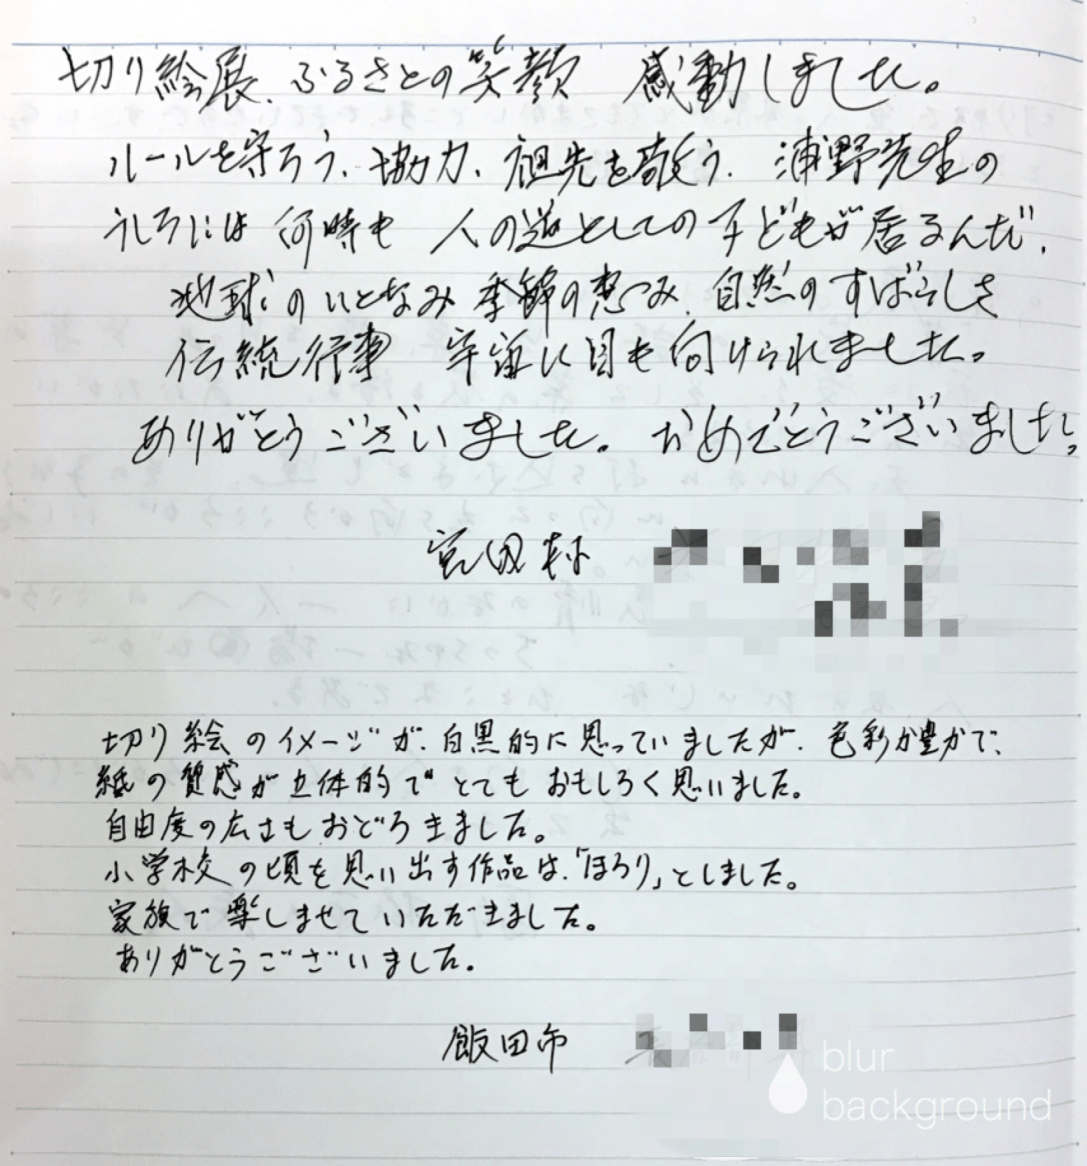 切り絵展、ふるさとの笑顔 感動しました。
ルールを守ろう、協力、祖先を敬う、浦野先生の
うしろには 何時も 人の道としての子どもが居るんだ、
地球のいとなみ 季節の恵つみ、自然のすばらしさ
伝統行事 宇宙に目も向けられました。
ありがとうございました。おめでとうございました。
宮田村
切り絵のイメージが、白黒的に思っていましたが、色彩が豊かで、
紙の質感が立体的でとてもおもしろく思いました。
自由度の広さもおどろきました。
小学校の頃を思い出す作品は、「ほろり」としました。
家族で楽しませていただきました。
ありがとうございました。
飯田市
blur
background